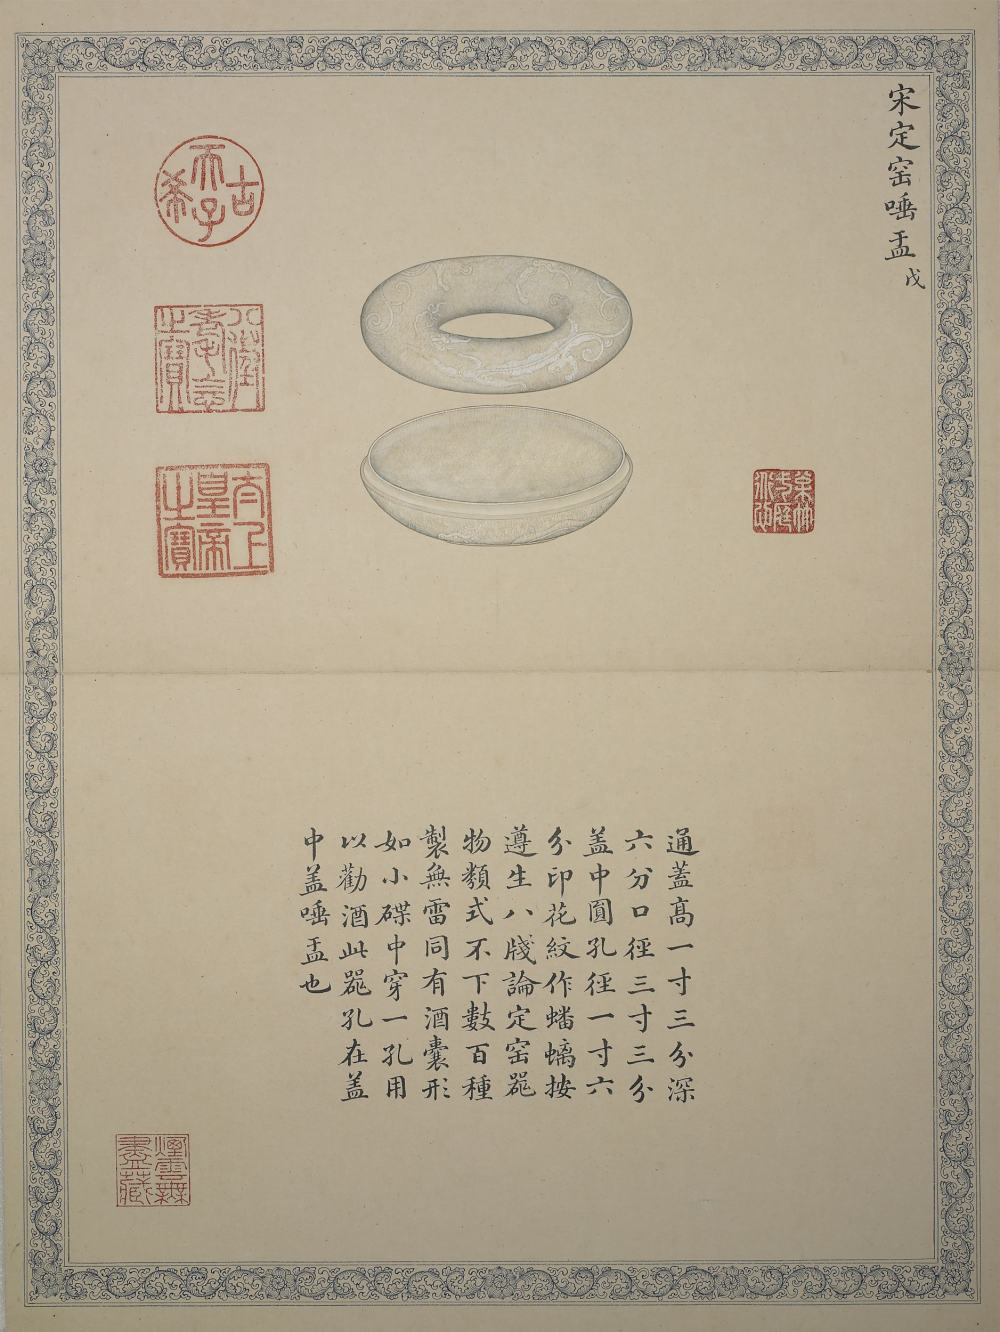 宋定窑唾盂 戊
通蓋髙一寸三分深
六分口徑三寸三分
盖中圓孔徑一寸六
分印花紋作蟠螭按
遵生八牋論定窑器
物類式不下數百種
製無雷同有酒囊形
如小碟中穿一孔用
以勸酒此器孔在盖
中盖唾盂也
古希天子
八徵耄念之寳
太上皇帝之寳